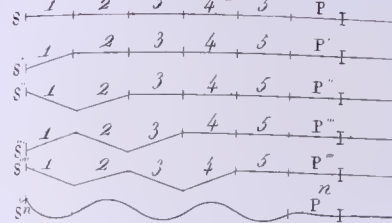 S 1 2 3 4 5 P I
S' 1 2 3 4 5 P' I
S'' 1 2 3 4 5 P'' I
S''' 1 2 3 4 5 P''' I
S'''' 1 2 3 4 5 P'''' I
Sⁿ Pⁿ I